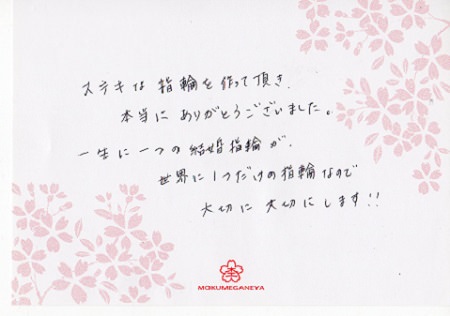 ステキな指輪を作って頂き、
本当にありがとうございました。
一生に一つの結婚指輪が、
世界に1つだけの指輪なので
大切に大切にします!!
MOKUMEGANEYA